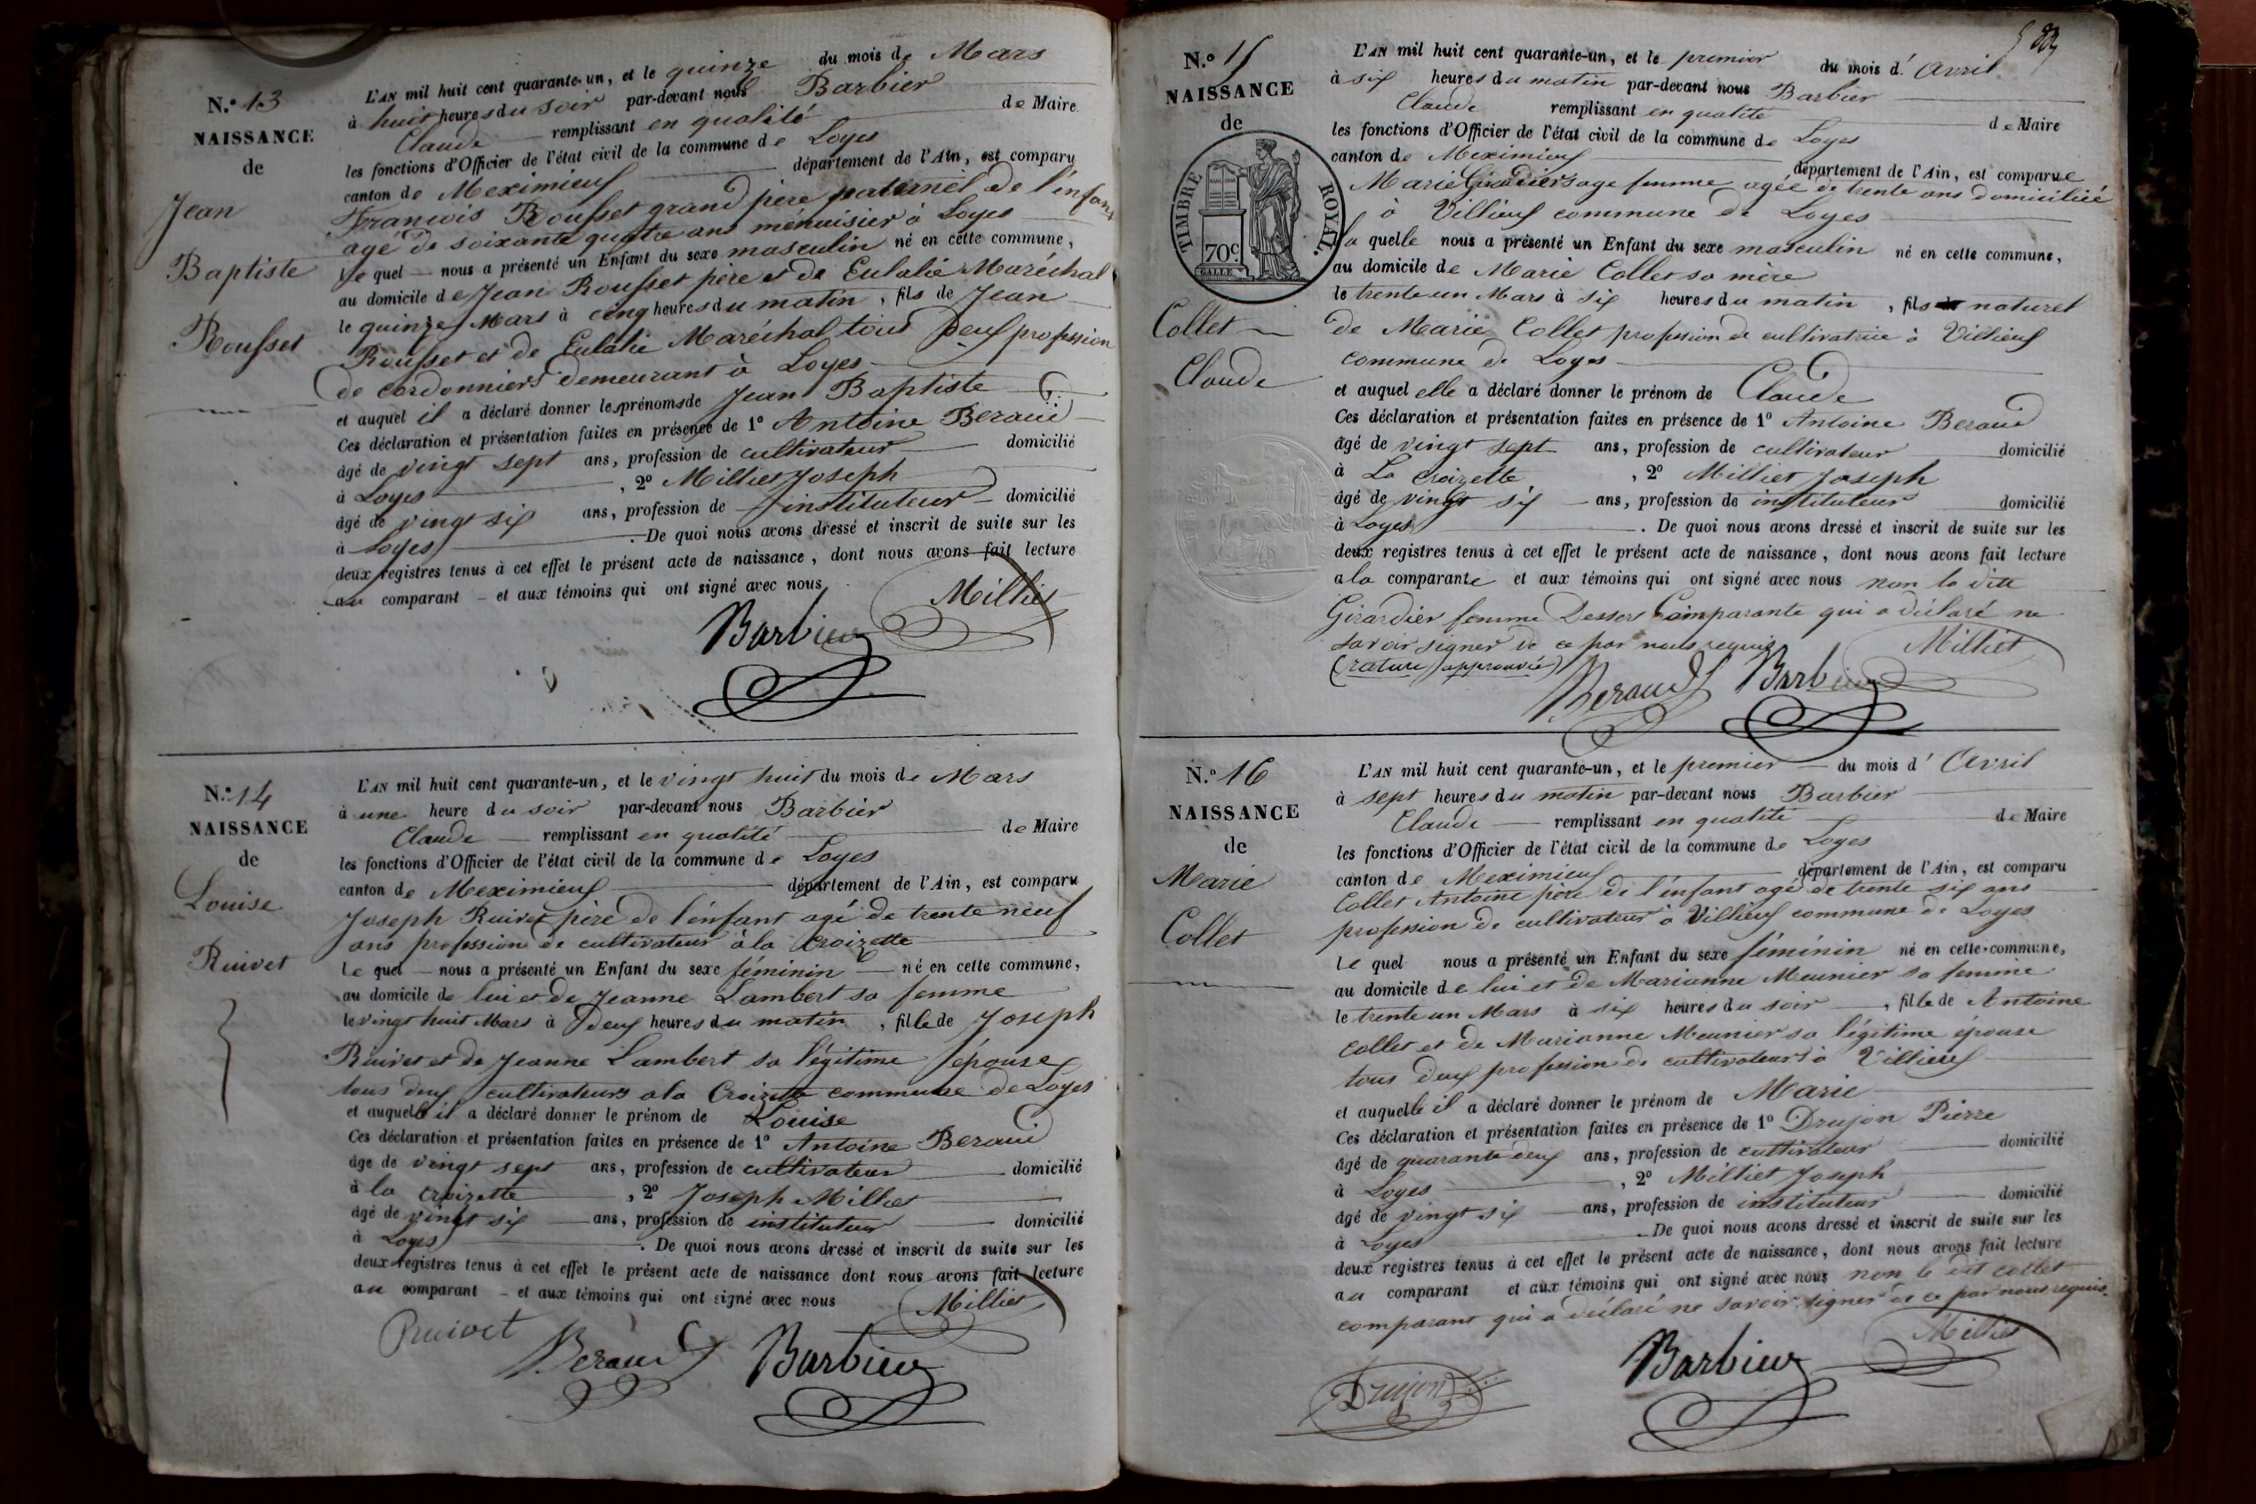 N.º 13
NAISSANCE
de
Jean
Baptiste
Rousset
L'AN mil huit cent quarante-un, et le quinze du mois de Mars
à huit heures du soir par-devant nous Barbier
Claude remplissant en qualité de Maire
les fonctions d'Officier de l'état civil de la commune de Loyes
canton de Meximieux département de l'Ain, est comparu
François Rousset grand père paternel de l'enfant
agé de soixante quatre ans ménuisier à Loyes
le quel nous a présenté un Enfant du sexe masculin né en cette commune,
au domicile de Jean Rousset père et de Eulalie Maréchal
le quinze Mars à cinq heures du matin, fils de Jean
Rousset et de Eulalie Maréchal tous deux profession
de cordonniers demeurant à Loyes
et auquel il a déclaré donner les prénoms de Jean Baptiste
Ces déclaration et présentation faites en présence de 1º Antoine Beraud
âgé de vingt sept ans, profession de cultivateur domicilié
à Loyes, 2º Milliet Joseph
âgé de vingt six ans, profession de instituteur domicilié
à Loyes. De quoi nous avons dressé et inscrit de suite sur les
deux registres tenus à cet effet le présent acte de naissance, dont nous avons fait lecture
au comparant et aux témoins qui ont signé avec nous
Milliet
Barbier
N.º 14
NAISSANCE
de
Louise
Ruivet
L'AN mil huit cent quarante-un, et le vingt huit du mois de Mars
à une heure du soir par-devant nous Barbier
Claude remplissant en qualité de Maire
les fonctions d'Officier de l'état civil de la commune de Loyes
canton de Meximieux département de l'Ain, est comparu
Joseph Ruivet père de l'énfant agé de trente neuf
ans profession de cultivateur à la Croizette
le quel nous a présenté un Enfant du sexe féminin né en cette commune,
au domicile de lui et de Jeanne Lambert sa femme
le vingt huit Mars à deux heures du matin, fille de Joseph
Ruivet et de Jeanne Lambert sa légitime épouse
tous deux cultivateurs a la Croizette commune de Loyes
et auquelle il a déclaré donner le prénom de Louise
Ces déclaration et présentation faites en présence de 1º Antoine Beraud
âgé de vingt sept ans, profession de cultivateur domicilié
à la croizette, 2º Joseph Milliet
âgé de vingt six ans, profession de instituteur domicilié
à Loyes. De quoi nous avons dressé et inscrit de suite sur les
deux registres tenus à cet effet le présent acte de naissance dont nous avons fait lecture
au comparant et aux témoins qui ont signé avec nous
Milliet
Ruivet Beraud Barbier
N.º 15
NAISSANCE
de
TIMBRE ROYAL.
70c
Collet
Claude
L'AN mil huit cent quarante-un, et le premier du mois d'Avril
à six heures du matin par-devant nous Barbier
Claude remplissant en qualité de Maire
les fonctions d'Officier de l'état civil de la commune de Loyes
canton de Meximieux département de l'Ain, est comparue
Marie Girardier sage femme agée de trente ans domiciliée
à Villieux commune de Loyes
la quelle nous a présenté un Enfant du sexe masculin né en cette commune,
au domicile de Marie Collet sa mère
le trente un Mars à six heures du matin, fils naturel
de Marie Collet profession de cultivatrice à Villieux
commune de Loyes
et auquel elle a déclaré donner le prénom de Claude
Ces déclaration et présentation faites en présence de 1º Antoine Beraud
âgé de vingt sept ans, profession de cultivateur domicilié
à La Croizette, 2º Milliet Joseph
âgé de vingt six ans, profession de instituteur domicilié
à Loyes. De quoi nous avons dressé et inscrit de suite sur les
deux registres tenus à cet effet le présent acte de naissance, dont nous avons fait lecture
a la comparante et aux témoins qui ont signé avec nous non la ditte
Girardier femme Comparante qui a déclaré ne
savoir signer de ce par nous requis
(rature approuvée) Milliet
Beraud Barbier
N.º 16
NAISSANCE
de
Marie
Collet
L'AN mil huit cent quarante-un, et le premier du mois d'Avril
à sept heures du matin par-devant nous Barbier
Claude remplissant en qualité de Maire
les fonctions d'Officier de l'état civil de la commune de Loyes
canton de Meximieux département de l'Ain, est comparu
Collet Antoine père de l'énfant agé de trente six ans
profession de cultivateur à Villieux commune de Loyes
le quel nous a présenté un Enfant du sexe féminin né en cette commune,
au domicile de lui et de Marianne Meunier sa femme
le trente un Mars à six heures du soir, fille de Antoine
Collet et de Marianne Meunier sa légitime épouse
tous deux profession de cultivateurs à Villieux
et auquelle il a déclaré donner le prénom de Marie
Ces déclaration et présentation faites en présence de 1º Drujon Pierre
âgé de quarante deux ans, profession de cultivateur domicilié
à Loyes, 2º Milliet Joseph
âgé de vingt six ans, profession de instituteur domicilié
à Loyes. De quoi nous avons dressé et inscrit de suite sur les
deux registres tenus à cet effet le présent acte de naissance, dont nous avons fait lecture
au comparant et aux témoins qui ont signé avec nous non le dit collet
comparant qui a déclaré ne savoir signer de ce par nous requis.
Milliet
Drujon Barbier